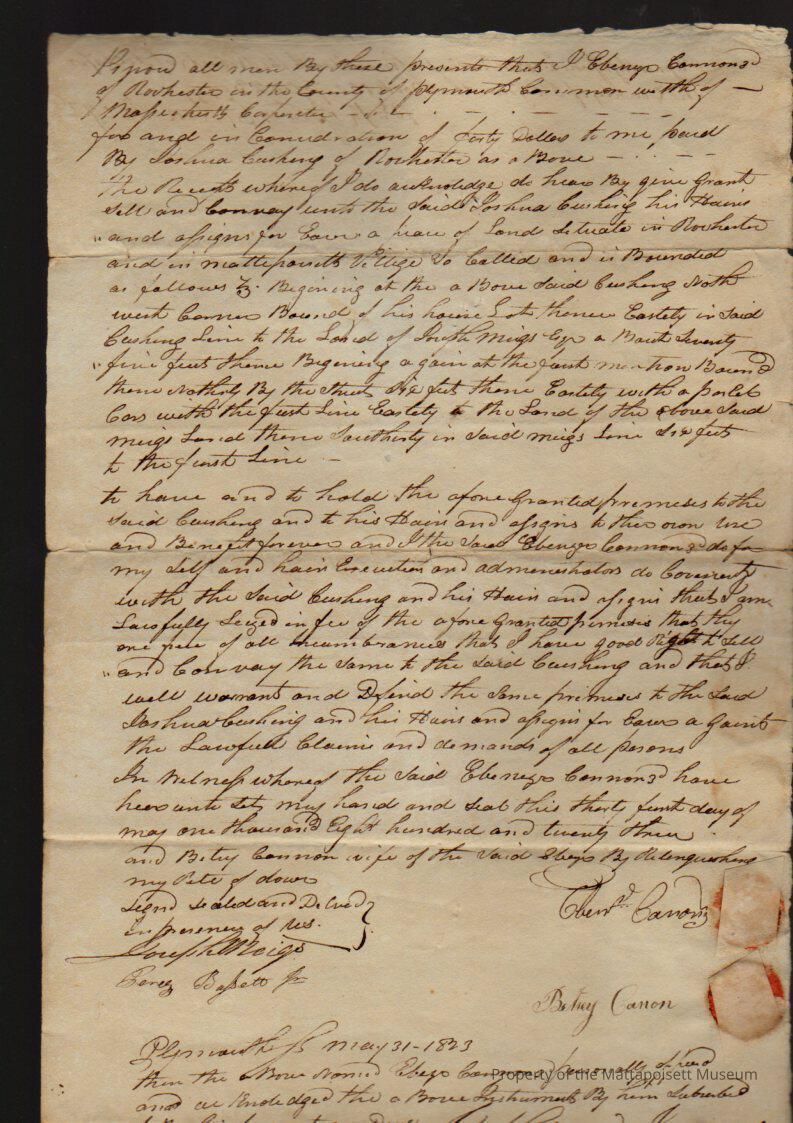 Know all men By these presents that I Ebenezr Cannon 3d
of Rochester in the County of plymouth Common with of —
Massachusetts Carpenter
for and in Consideration of forty Dollers to me paid
By Joshua Cushing of Rochester as a Bove
the Recept whereof I do acknoledge do hear By give Grant
Sell and Convay unto the Said Joshua Cushing his Hairs
and assigns for Eaver a peace of Land Situate in Rochester
and in mattepoisett Vilege So Called and is Bounded
as follows Viz. Begining at the a Bove Said Cushing North
west Corner Bound of his house Lot thence Eastely in Said
Cushing Line to the Land of Joseph Meigs Esqr a Bout Seventy
five feet thence Begining a gain at the furst mention Bound
thence Notherly By the Street Six feet thence Eastely with a parlel
Cors with the furst Line Eastely to the Land of the above Said
meigs Land thence Southerly in Said meigs Line Six feet
to the furst Line
to have and to hold the afore Granted premises to the
Said Cushing and to his Hairs and assigns to their own use
and Benefit forever and I the Said Ebenezr Cannon 3d do for
my Self and hairs Executors and administrators do Covenant
with the Said Cushing and his Hairs and assigns that I am
Lawfully Seized in fee of the afore Granted premises that they
are free of all incumbrances that I have good Right to Sell
and Convay the Same to the Said Cushing and that I
will warrant and Defend the Same premises to the Said
Joshua Cushing and his Hairs and assigns for Eaver a gainst
the Lawfull Claims and demands of all persons
In Witness whereof the Said Ebenezr Cannon 3d have
hereunto Set my hand and Seal this thirty furst day of
may one thousand Eight hundred and twenty three
and Betsy Cannon wife of the Said Ebezr By Relenqueshing
my Rite of dower
Signd Sealed and Delved
in presence of us.
Joseph Meigs
Bassett Jr
Ebenr Canon 3
Betsey Canon
Plymouth Ss may 31 - 1823
then the a Bove Named Ebezr Cannon personally apeard
and acknoledged the a Bove Instrument By him Subscribed
Property of the Mattapoisett Museum